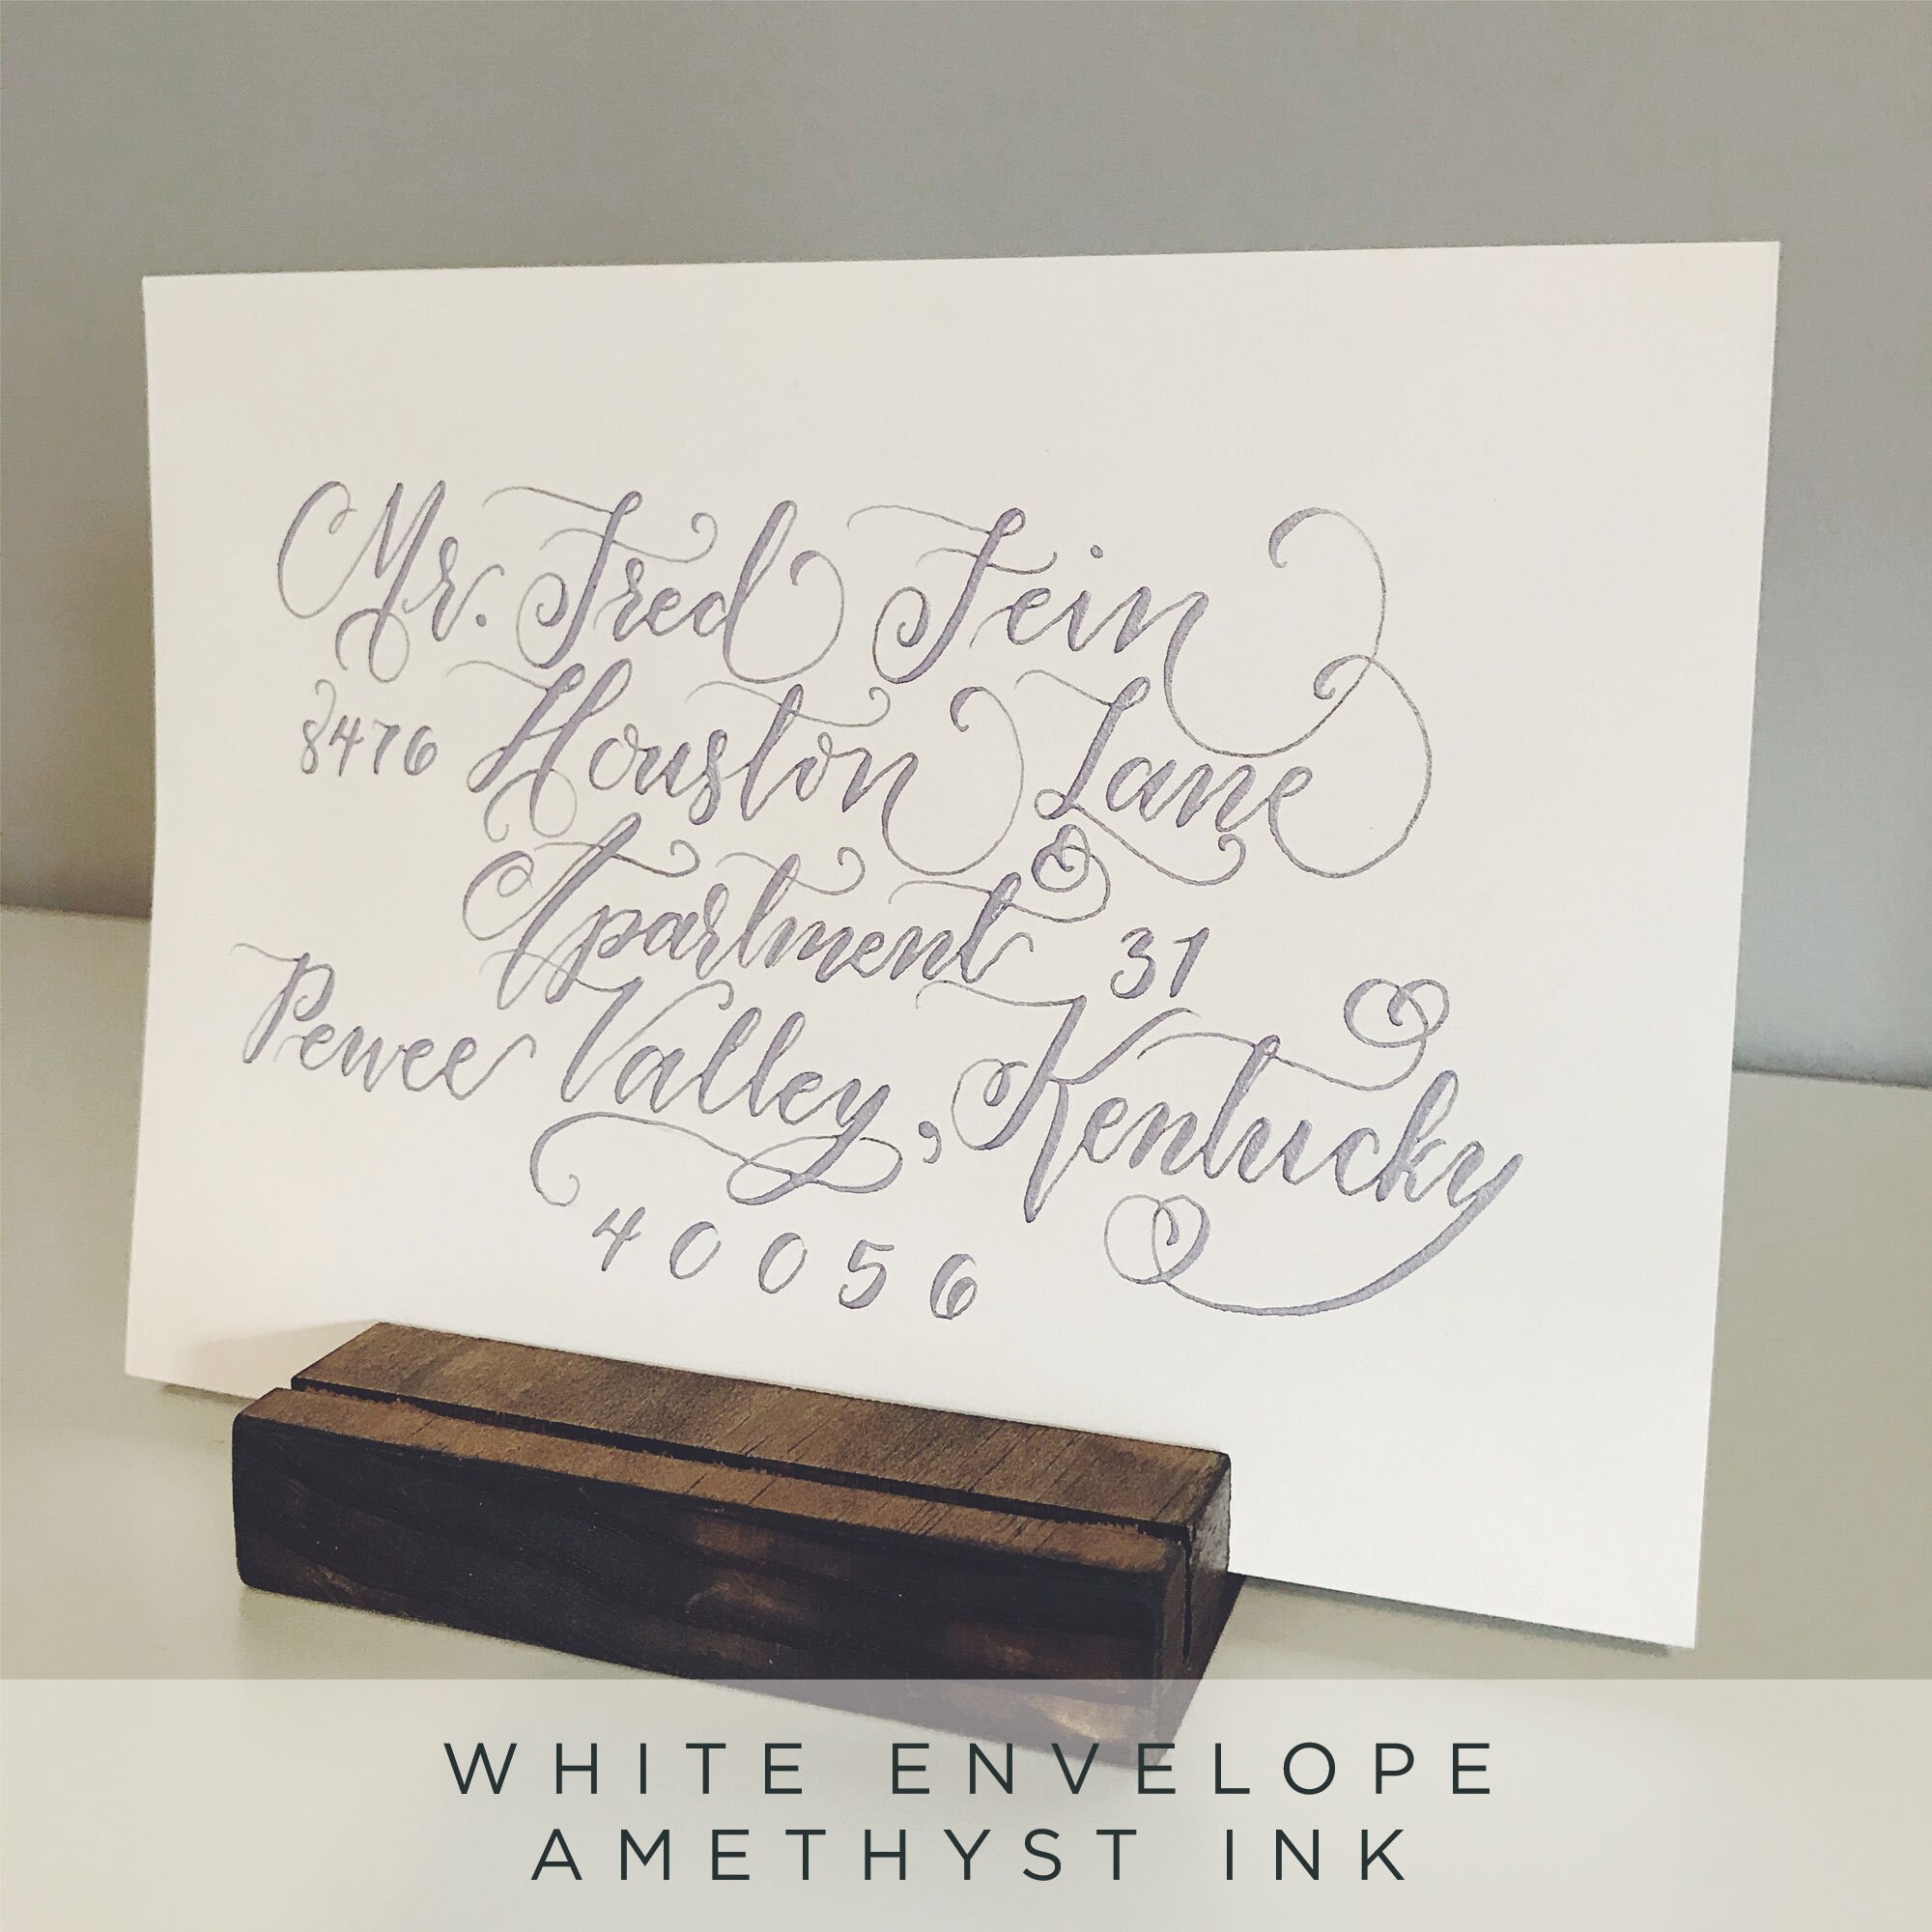 Mr. Fred Fein
8476 Houston Lane
Apartment 31
Pewee Valley, Kentucky
40056
WHITE ENVELOPE
AMETHYST INK